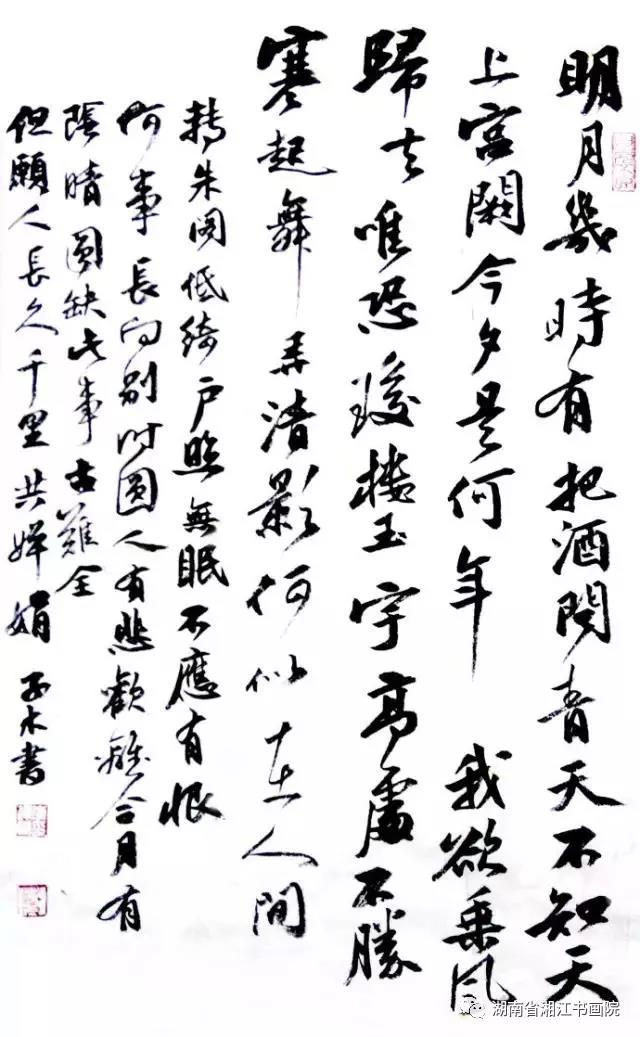 明月幾時有把酒問青天不知天
上宮闕今夕是何年 我欲乘風
歸去唯恐瓊樓玉宇高處不勝
寒起舞弄清影何似在人間
轉朱阁低綺户照無眠不應有恨
何事長向别时圓人有悲歡離合月有
陰晴圓缺此事古難全
但願人長久千里共嬋娟 木書
湖南省湘江书画院